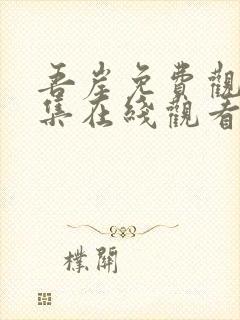 吾岸免費觀
集在綫觀看
樸開